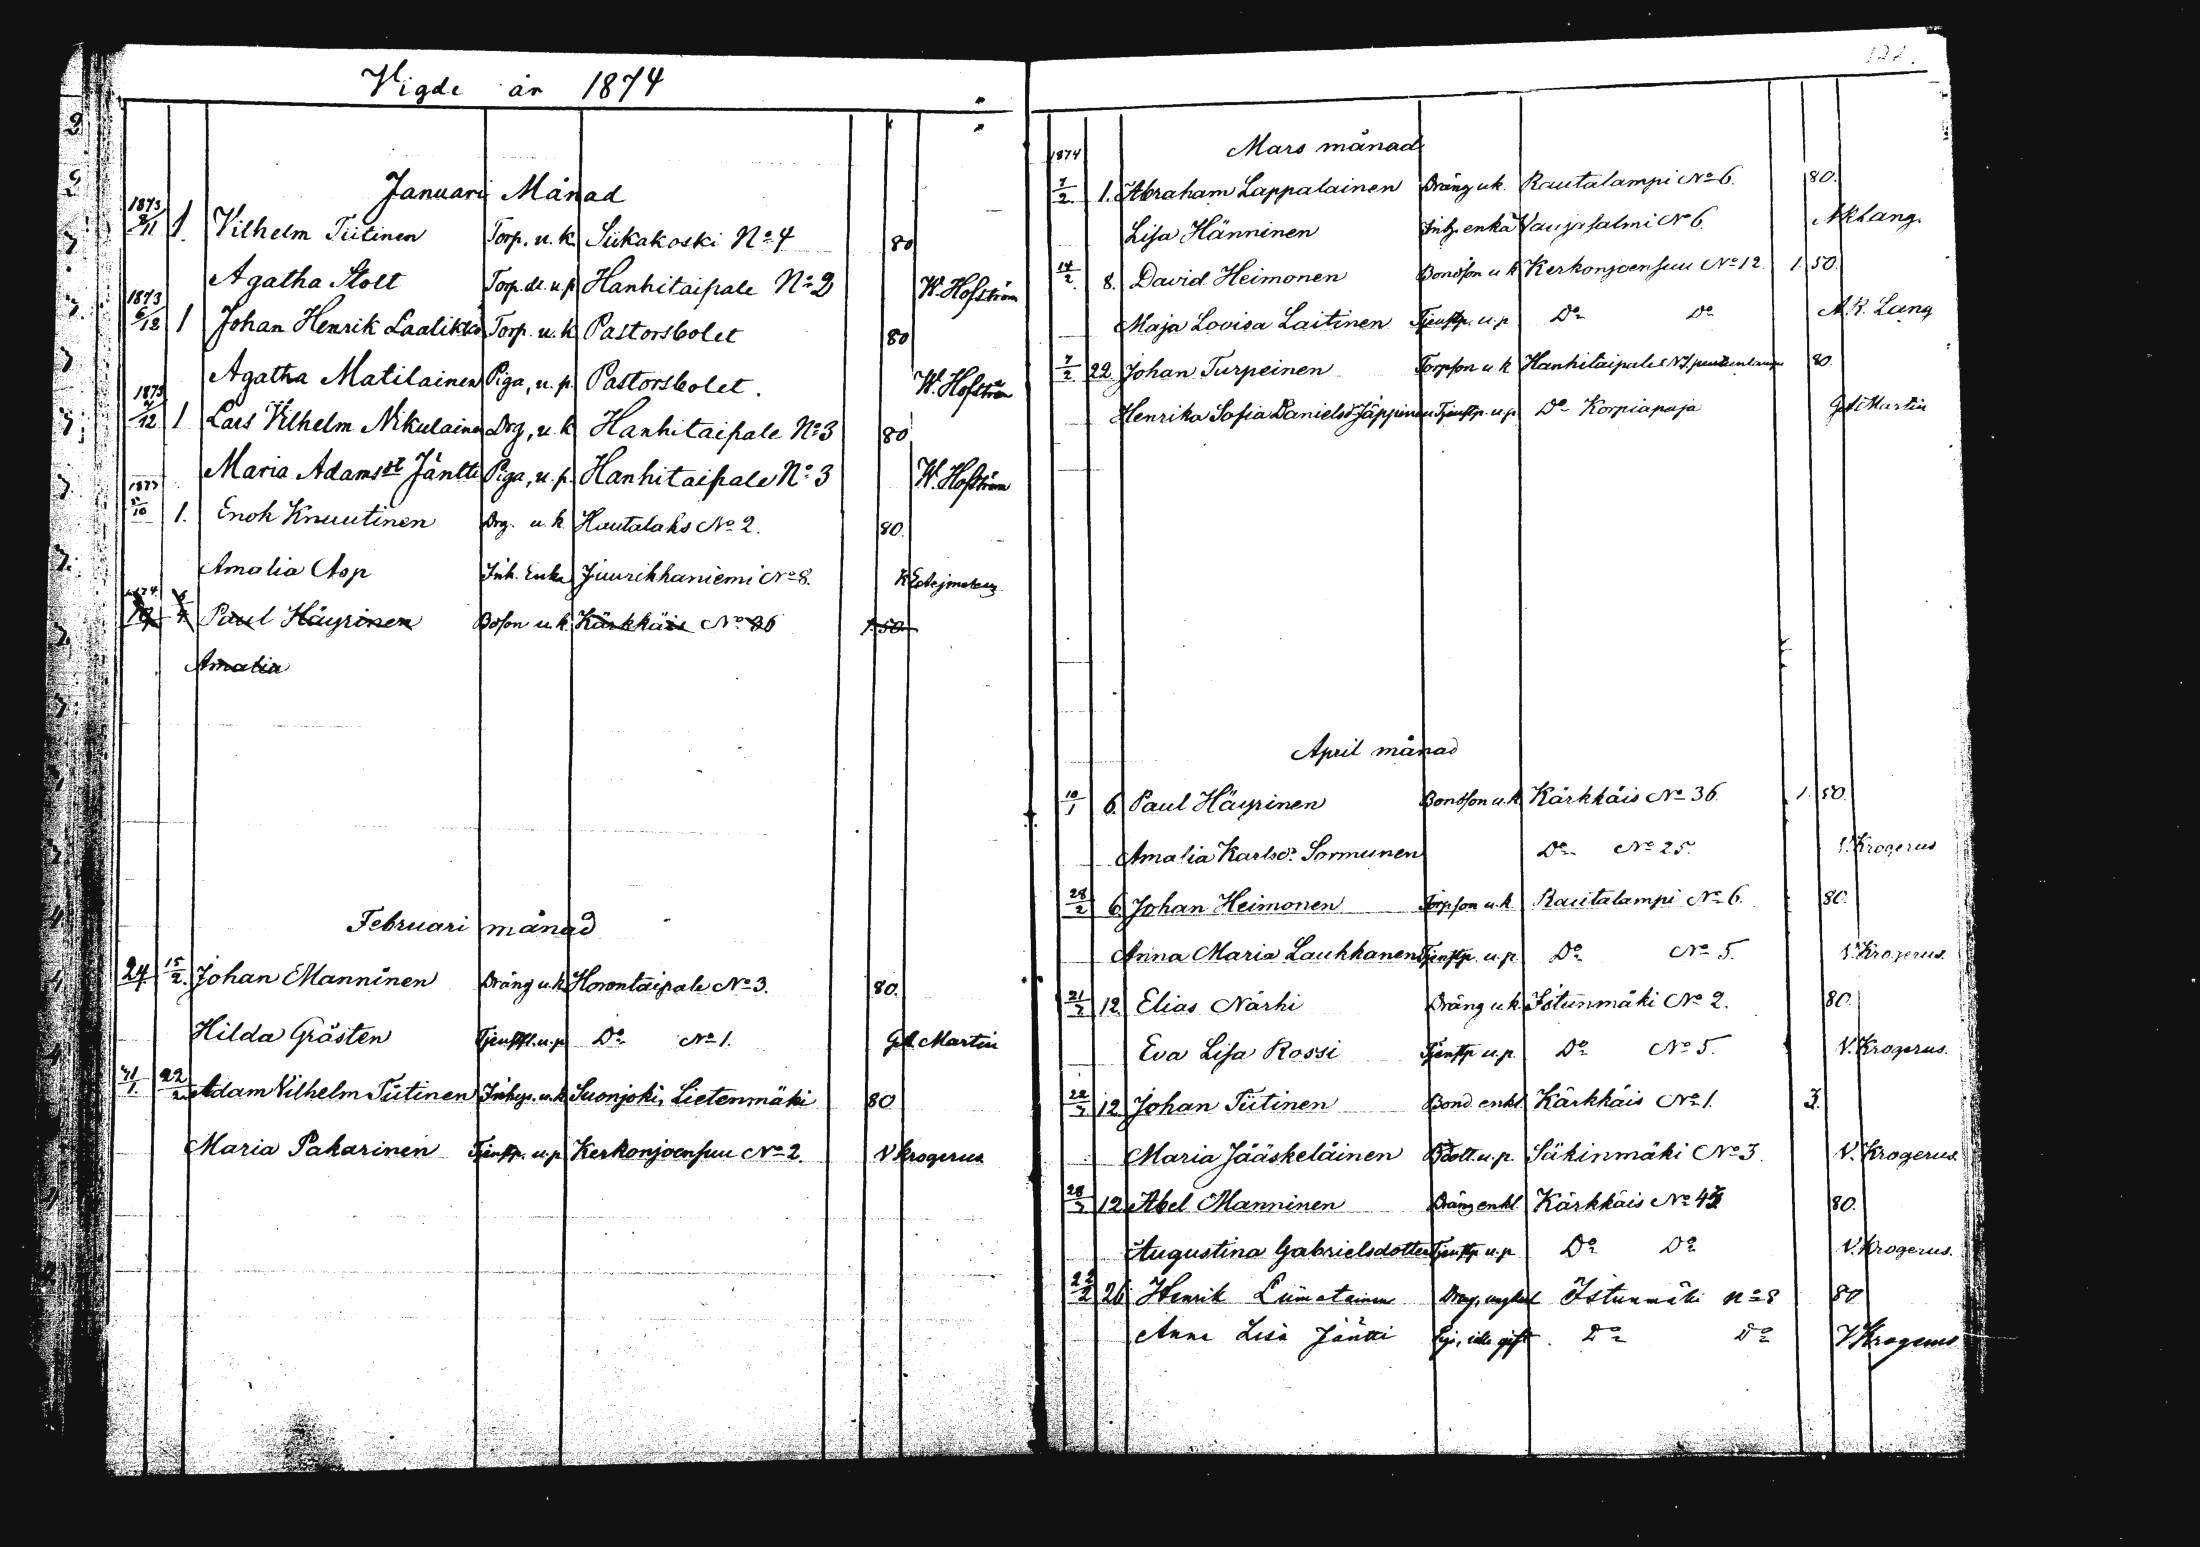 Vigde år 1874
Januari Månad
1873 8/11 1. Vilhelm Tiitinen Torp. u. k. Siikakoski No 4 80
Agatha Stolt Torp. dr. u. p. Hanhitaipale No 2 W. Hofström
1873 6/12 1 Johan Henrik Laatikäi Torp. u. k. Pastorsbolet 80
Agatha Matilainen Piga, u. p. Pastorsbolet. W. Hofström
1873 /12 1 Lars Vilhelm Nikulainen Drg, u. k. Hanhitaipale No 3 80
Maria Adamsdt Jäntti Piga, u. p. Hanhitaipale No 3 W. Hofström
1873 5/10 1. Enok Knuutinen Drg. u. k Hautalaks No 2. 80.
Amalia Asp Inh. Enka Juurikkaniemi No 8.
1874 Paul Häyrinen Boson u. k. Kärkkäis No 36 1. 50.
Amalia
Februari månad
24 15/2. Johan Manninen Dräng u. k. Horontaipale No 3. 80.
Hilda Grästen Do No 1. G. A. Martin
31/1. 22/2 Adam Vilhelm Tiitinen Inhys. u. k. Suonjoki, Lietenmäki 80
Maria Pakarinen Tjenstp. u. p. Kerkonjoensuu No 2. V Krogerus
Mars månad
1874 7/2. 1. Abraham Lappalainen Dräng u. k. Rautalampi No 6. 80.
Lisa Hänninen Inh. enka Vaajasalmi No 6. A K Lang.
14/2. 8. David Heimonen Bondson u k Kerkonjoensuu No 12 1. 50.
Maja Lovisa Laitinen Tjenstp. u. p Do Do A. K. Lang
7/2 22. Johan Turpeinen Torpson u k Hanhitaipale 80
Henrika Sofia Danielsd Jäppinen Tjenstp. u. p. Do Korpiapaja G A Martin
April månad
10/1 6. Paul Häyrinen Bondson u. k. Kärkkäis No 36 1. 50.
Amalia Karlsdr Sormunen Do No 25. V. Krogerus
28/2 6. Johan Heimonen Torpson u. k Rautalampi No 6. 80.
Anna Maria Laukkanen Tjenstp. u. p. Do No 5. V. Krogerus.
21/3 12. Elias Närhi Dräng u. k. Istunmäki No 2. 80.
Eva Lisa Rossi Tjenstp u. p. Do No 5. V. Krogerus.
22/3 12. Johan Tiitinen Bond. enkl Kärkkäis No 1. 3.
Maria Jääskeläinen Bdott. u. p. Säkinmäki No 3. V. Krogerus.
28/3 12. Abel Manninen Dräng enkl Kärkkäis No 80.
Augustina Gabrielsdotter Tjenstp u. p Do Do V. Krogerus.
22/2 26 Henrik Liimatainen Drng, ungkarl Istunmäki no 8 80
Anna Lisa Jäntti Do Do V Krogerus